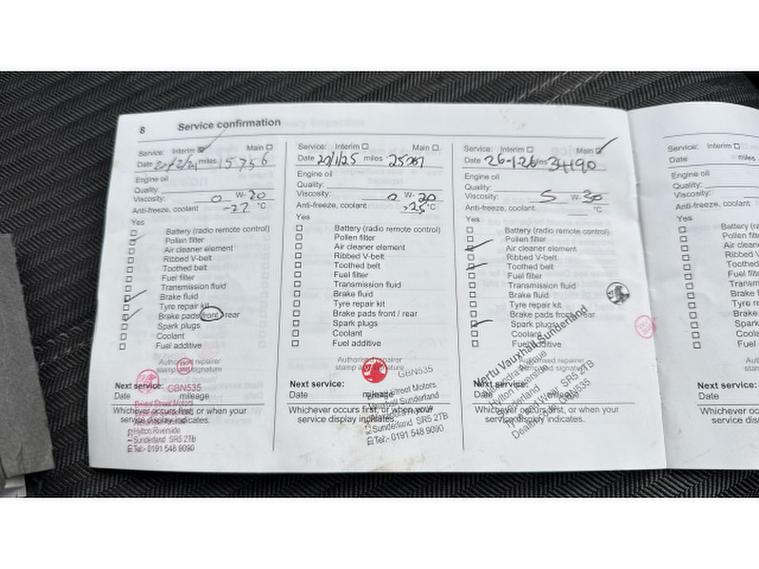 8 Service confirmation
Service: Interim ☑ Main ☐
miles 15756
Engine oil
Quality:
Viscosity: 0 W-20
Anti-freeze, coolant °C
Yes
☐ Battery (radio remote control)
☐ Pollen filter
☐ Air cleaner element
☐ Ribbed V-belt
☐ Toothed belt
☐ Fuel filter
☐ Transmission fluid
☑ Brake fluid
☐ Tyre repair kit
☑ Brake pads front / rear
☐ Spark plugs
☐ Coolant
☐ Fuel additive
Authorised repairer
stamp and signature
GBN535
Next service:
Date mileage
Bristol Street Motors
Whichever occurs first, or when your
service display indicates.
Hylton Riverside
Sunderland SR5 2TB
Tel:- 0191 548 9090
Service: Interim ☐ Main ☐
Date 20/1/25 miles
Engine oil
Quality:
Viscosity: 0 W-20
Anti-freeze, coolant °C
Yes
☐ Battery (radio remote control)
☐ Pollen filter
☐ Air cleaner element
☐ Ribbed V-belt
☐ Toothed belt
☐ Fuel filter
☐ Transmission fluid
☐ Brake fluid
☐ Tyre repair kit
☐ Brake pads front / rear
☐ Spark plugs
☐ Coolant
☐ Fuel additive
Authorised repairer
stamp and signature
GBN535
Next service:
Date mileage
Street Motors
Vauxhall Sunderland
Whichever occurs first, or when your
service display indicates.
Sunderland SR5 2TB
Tel:- 0191 548 9090
Service: Interim ☐ Main ☑
Date 26-1-26 miles 34190
Engine oil
Quality:
Viscosity: 5 W-30
Anti-freeze, coolant °C
Yes
☐ Battery (radio remote control)
☐ Pollen filter
☑ Air cleaner element
☐ Ribbed V-belt
☑ Toothed belt
☐ Fuel filter
☐ Transmission fluid
☐ Brake fluid
☐ Tyre repair kit
☐ Brake pads front / rear
☑ Spark plugs
☐ Coolant
☐ Fuel additive
Authorised repairer
stamp and signature
Vertu Vauxhall Sunderland
Hylton Riverside
Sunderland
Tyne and Wear SR5 2TB
Next service:
Date mileage
Whichever occurs first, or when your
service display indicates.
Service: Interim ☐
Date miles
Engine oil
Quality:
Viscosity:
Anti-freeze, coolant
Yes
☐ Battery (r
☐ Pollen filt
☐ Air clean
☐ Ribbed V
☐ Toothed
☐ Fuel filte
☐ Transmi
☐ Brake f
☐ Tyre re
☐ Brake
☐ Spark
☐ Coola
☐ Fuel
Next service:
Date
Whichever occ
service displ